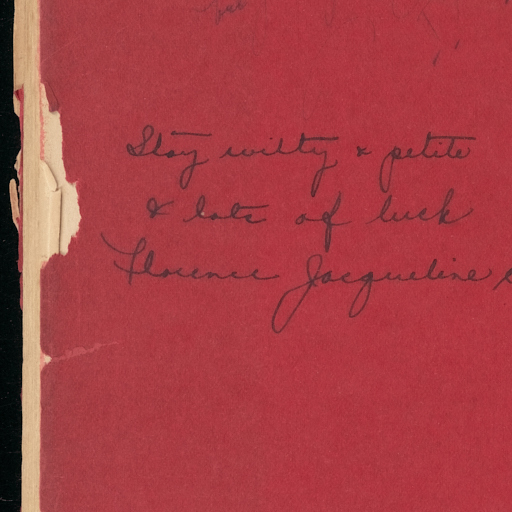 Stay wilty & petite
& lots of luck
Florence Jacqueline